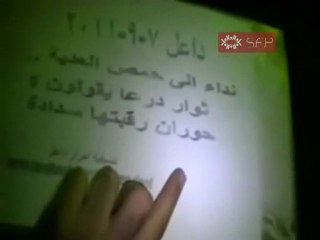 داعل ٢٠١١٠٩٠٧
نداء الى حمص العدية ..
ثوار درعا يقولون ة
حوران رقبتها سدادة